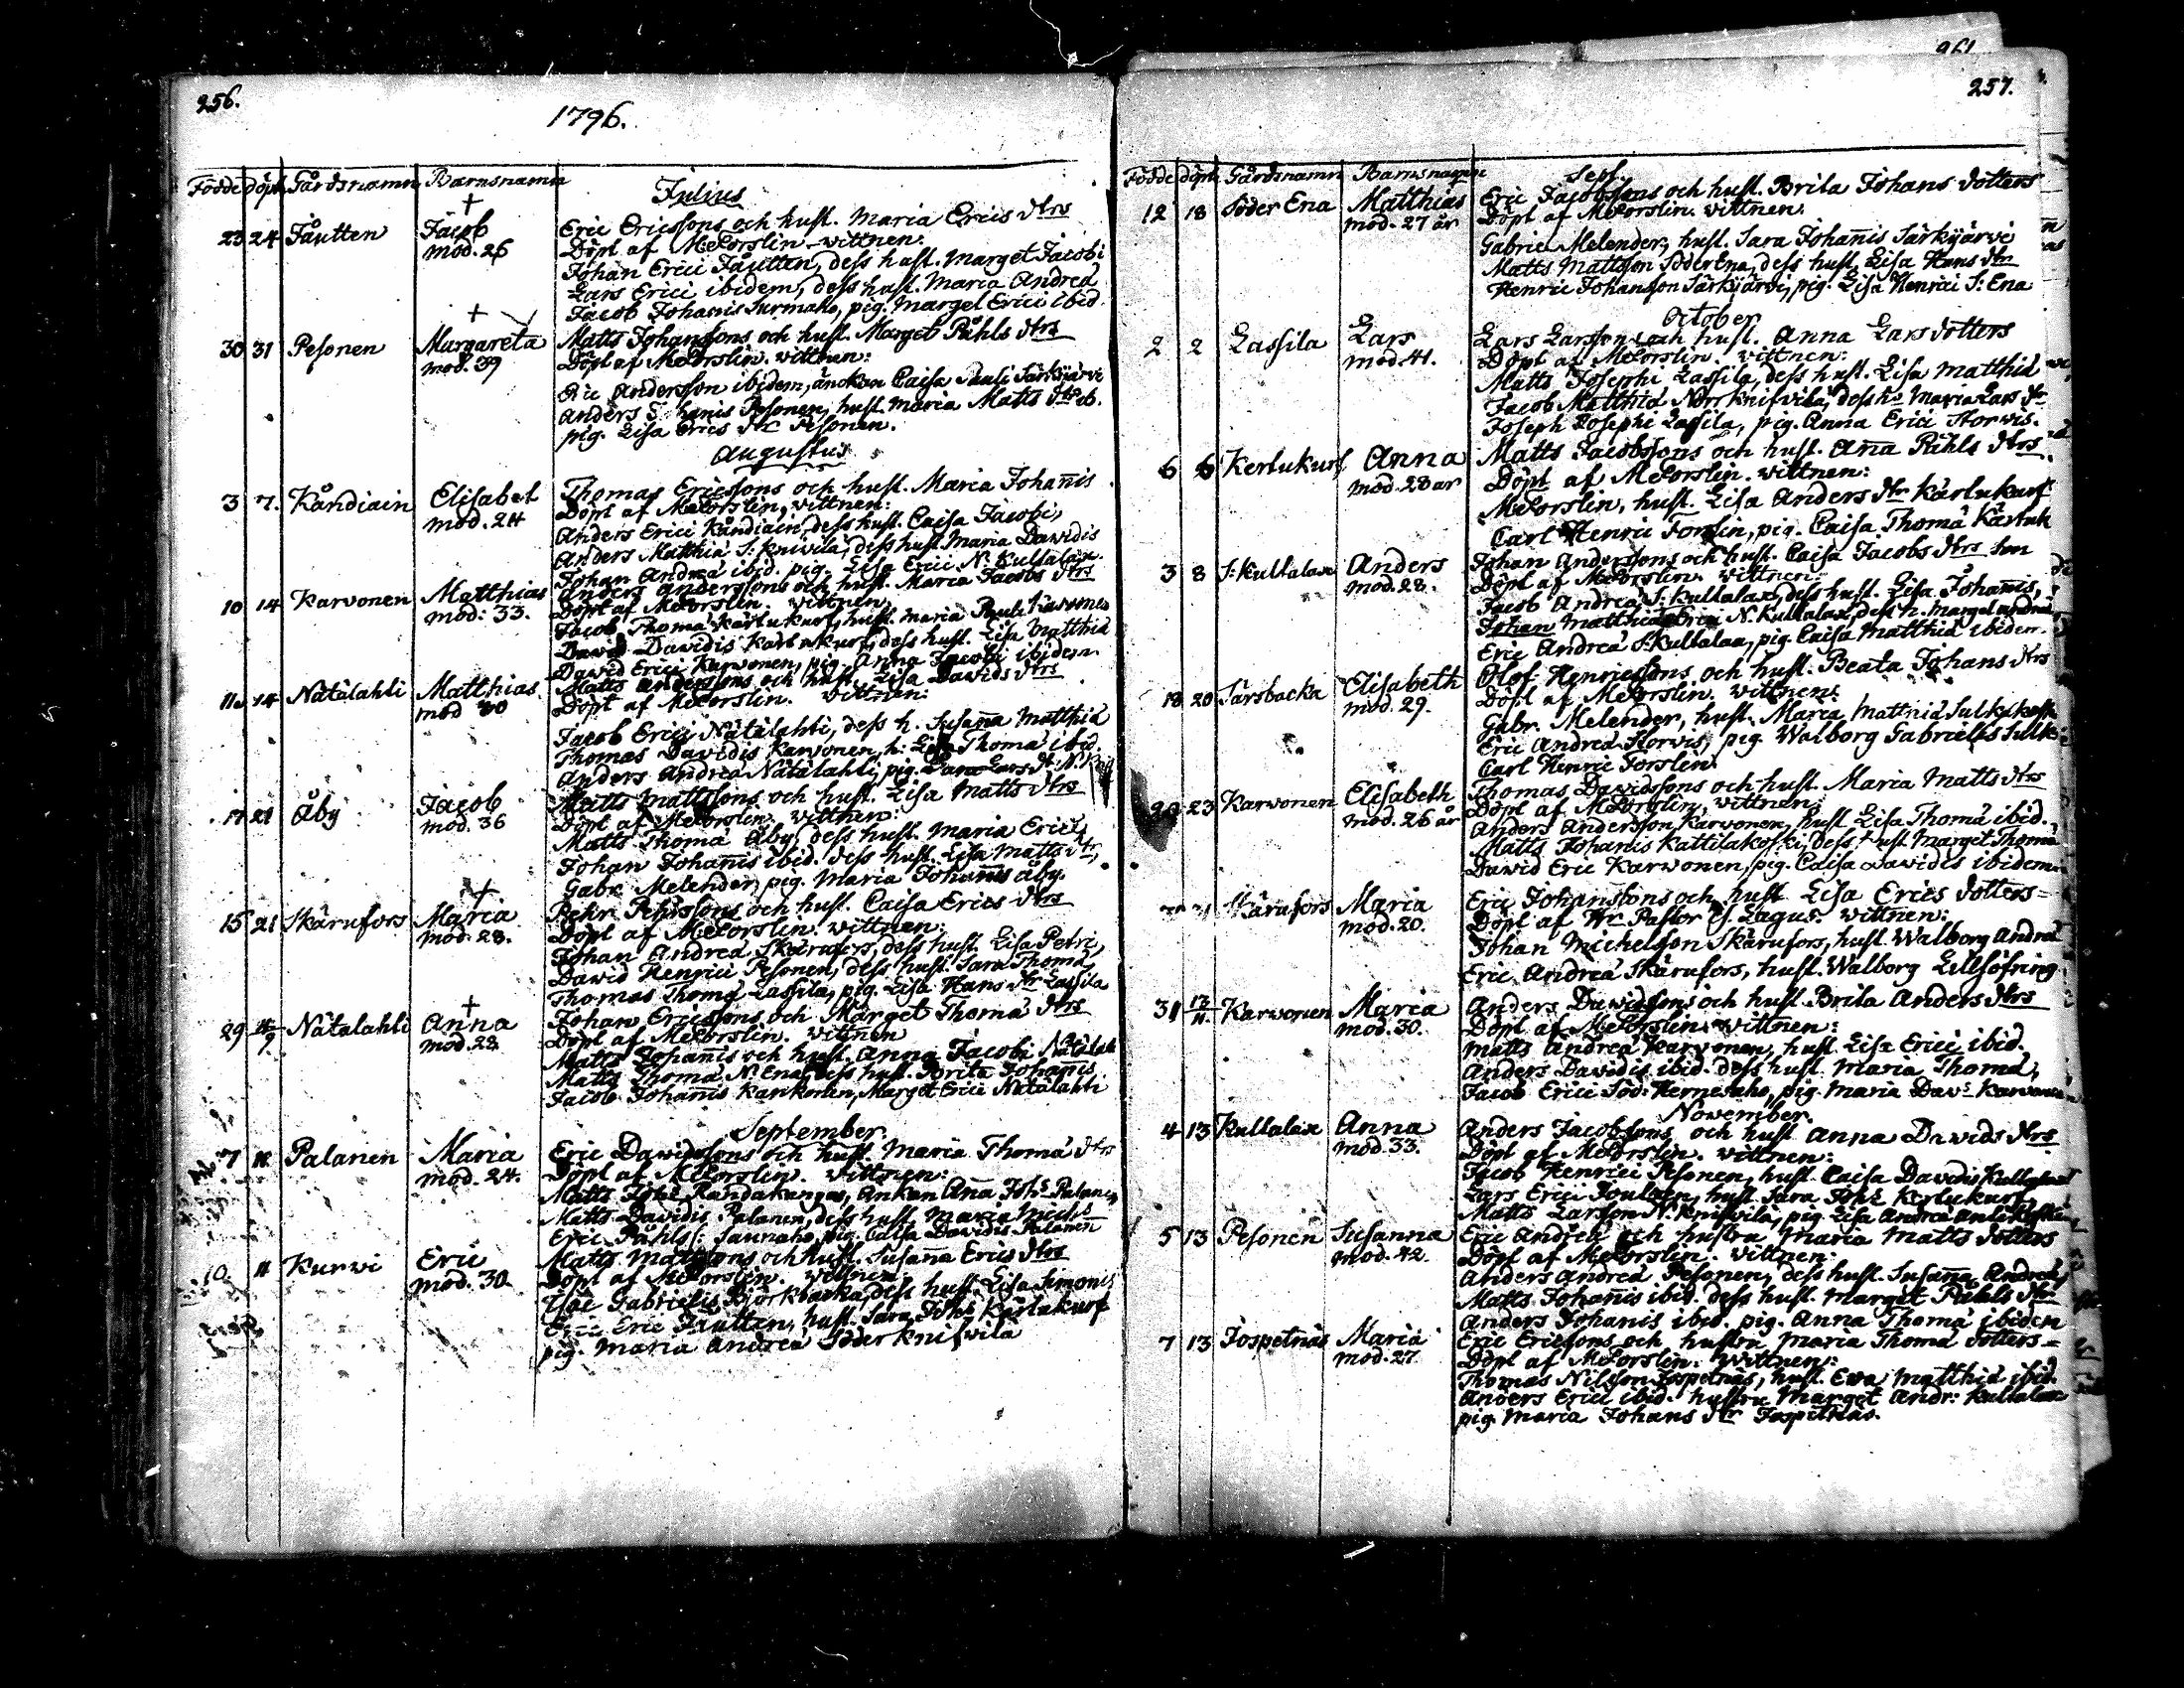 256.
1796.
Födde döpt Gårdsnamn Barnsnamn
Julius
23 24 Fåutten Jacob mod. 26
Eric Ericssons och hust. Maria Erics dtrs
Döpt af M Forslin. vittnen:
Johan Erici Fåutten, dess hust. Marget Jacobi
Lars Erici ibidem, dess hust. Maria Andreæ
Jacob Johanis Surmaho, pig. Marget Erici ibid.
30 31 Pesonen Margareta mod. 39
Matts Johanssons och hust. Marget Påhls dtrs
Döpt af M Forslin. vittnen:
Eric Andersson ibidem, änckan Caisa Pauli Särkijärvi
Anders Johanis Pesonen, hust. Maria Matts dtr
pig. Lisa Erics dtr Pesonen.
Augustus
3 7. Kåndiain Elisabet mod. 24
Thomas Ericssons och hust. Maria Johanis
Döpt af M Forslin, vittnen:
Anders Erici Kåndiain, dess hust. Caisa Jacobi,
Anders Matthiæ S: Knivilä, dess hust. Maria Davidis
Johan Andreæ ibid. pig. Lisa Erici N. Kultalax
10 14 Karvonen Matthias mod: 33.
Anders Anderssons och hust. Maria Jacobs dtrs
Döpt af M Forslin. vittnen:
Jacob Thomæ Kärtukurf, hust. Maria Pauli Karvonen
David Davidis Kärtukurf, dess hust. Lisa Matthiæ
David Erici Karvonen, pig. Anna Jacobi ibidem
11. 14 Nätälahti Matthias mod 30
Matts Anderssons och hust. Lisa Davids dtrs
Döpt af M Forslin. vittnen:
Jacob Erici Nätälahti, dess h. Susanna Matthiæ
Thomas Davidis Karvonen, h: Lisa Thomæ ibid.
Anders Andreæ Nätälahti, pig. Lars dtr N.
17 21 Åby Jacob mod. 36
Matts Mattssons och hust. Lisa Matts dtrs
Döpt af M Forslin. vittnen:
Matts Thomæ Åby, dess hust. Maria Erici,
Johan Johanis ibid. dess hust. Lisa Matts dtr,
Gabr. Melender, pig. Maria Johanis Åby.
15 21 Skärufors Maria mod. 28.
Pehr Pehrssons och hust. Caisa Erics dtrs
Döpt af M Forslin. vittnen:
Johan Andreæ Skärufors, dess hust. Lisa Petri,
David Henrici Pesonen, dess hust. Sara Thomæ,
Thomas Thomæ Lassila, pig. Lisa Hans dtr Lassila
29 4/9 Nätalahti Anna mod. 28
Johan Ericssons och Marget Thomæ dtrs
Döpt af M Forslin. vittnen
Matts Johanis och hust. Anna Jacobi Nätälah
Matts Thomæ N. Ena, dess hust. Brita Johanis
Jacob Johanis Kankonen, Marget Erici Nätälahti
September
7 11 Palanen Maria mod. 24.
Eric Davidssons och hust. Maria Thomæ dtrs
Döpt af M Forslin. vittnen:
Matts Joh: Randakangas, änkan Anna Joh: Palanen
Matts Davidis Palanen, dess hust. Maria
Eric Påhls S: Saunaho, pig. Caisa Davidis Palanen
10. 11 Kurvi Eric mod. 30.
Matts Mattssons och hust. Susanna Erics dtrs
Döpt af M Forslin. vittnen
Gabrielis Björkbacka, dess hust. Lisa Simonis
Eric Eric Fautten, hust. Sara Joh: Kärtukurf
pig. Maria Andreæ Söder Knifvilä
257.
Födde döpt Gårdsnamn Barnsnamn
Sept.
12 18 Söder Ena Matthias mod. 27 år
Eric Jacobssons och hust. Brita Johans dotters
Döpt af M Forslin. vittnen:
Gabriel Melender, hust. Sara Johanis Särkijärvi
Matts Mattsson Söder Ena, dess hust. Lisa Hans dtr
Henric Johansson Särkijärvi, pig. Lisa Henrici S: Ena
October
2 2 Lassila Lars mod. 41.
Lars Larssons och hust. Anna Lars dotters
Döpt af M Forslin. vittnen:
Matts Josephi Lassila, dess hust. Lisa Matthiæ
Jacob Matthiæ Norrknifvilä, dess h. Maria Lars dtr
Joseph Josephi Lassila, pig. Anna Erici Storvis.
6 6 Kertukurf Anna mod. 28 år
Matts Jacobssons och hust. Anna Påhls dtrs
Döpt af M Forslin. vittnen:
M Forslin, hust. Lisa Anders dtr Kärtukurf
Carl Henric Forslin, pig. Caisa Thomæ Kärtuk
3 8 S: Kultalax Anders mod. 28.
Johan Anderssons och hust. Caisa Jacobs dtrs son
Döpt af M Forslin. vittnen:
Jacob Andreæ S: Kultalax, dess hust. Lisa Johanis,
Johan Matthiæ N. Kultalax, dess h. Marget Andreæ
Eric Andreæ S: Kultalax, pig. Caisa Matthiæ ibidem.
18 20 Särsbacka Elisabeth mod. 29.
Olof Henricssons och hust. Beata Johans dtrs
Döpt af M Forslin. vittnen:
Gabr. Melender, hust. Maria Matthiæ Sulkakoski
Eric Andreæ Storvis, pig. Walborg Gabrielis Sulk
Carl Henric Forslin.
20 23 Karvonen Elisabeth mod. 26 år
Thomas Davidssons och hust. Maria Matts dtrs
Döpt af M Forslin. vittnen:
Anders Andersson Karvonen, hust. Lisa Thomæ ibid.
Matts Johanis Kattilakoski, dess hust. Marget Thomæ
David Eric Karvonen, pig. Caisa Davidis ibidem
31 Skärufors Maria mod. 20.
Eric Johanssons och hust. Lisa Erics dotters
Döpt af Hr Pastor Lagus. vittnen:
Johan Michelsson Skärufors, hust. Walborg Andreæ
Eric Andreæ Skärufors, hust. Walborg Lillsöfring
31 13/11. Karvonen Maria mod. 30.
Anders Davidssons och hust. Brita Anders dtrs
Döpt af M Forslin. vittnen:
Matts Andreæ Karvonen, hust. Lisa Erici ibid.
Anders Davidis ibid. dess hust. Maria Thomæ,
Jacob Erici Söd: Hernesaho, pig. Maria Dav: Karvonen
November
4 13 Kultalax Anna mod. 33.
Anders Jacobssons och hust Anna Davids dtrs
Döpt af M Forslin. vittnen:
Jacob Henrici Pesonen, hust. Caisa Davidis Kultalax
Lars Erici Poulain, hust. Sara Joh: Kertukurf,
Matts Larsson N. Knifvilä, pig. Lisa Andreæ
5 13 Pesonen Susanna mod. 42.
Eric Andreæ och hustru Maria Matts dotters
Döpt af M Forslin. vittnen:
Anders Andreæ Pesonen, dess hust. Susanna Andreæ,
Matts Johanis ibid. dess hust. Marget Påhls dtr
Anders Johanis ibid. pig. Anna Thomæ ibidem
7 13 Jospetnäs Maria mod. 27.
Eric Ericssons och hustru Maria Thomæ dotters
Döpt af M Forslin. vittnen:
Thomas Nilsson Jospetnäs, hust. Eva Matthiæ ibid.
Anders Erici ibid. hustru Marget Andr: Kultalax
pig. Maria Johans dtr Jospetnäs.